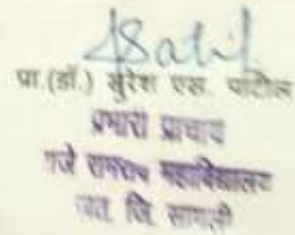 प्रा.(डॉ.) सुरेश एस. पाटील
प्रभारी प्राचार्य
राजे रामराव महाविद्यालय
जत, जि. सांगली